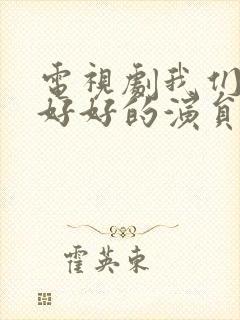 電視劇我们
好好的演員
霍英東